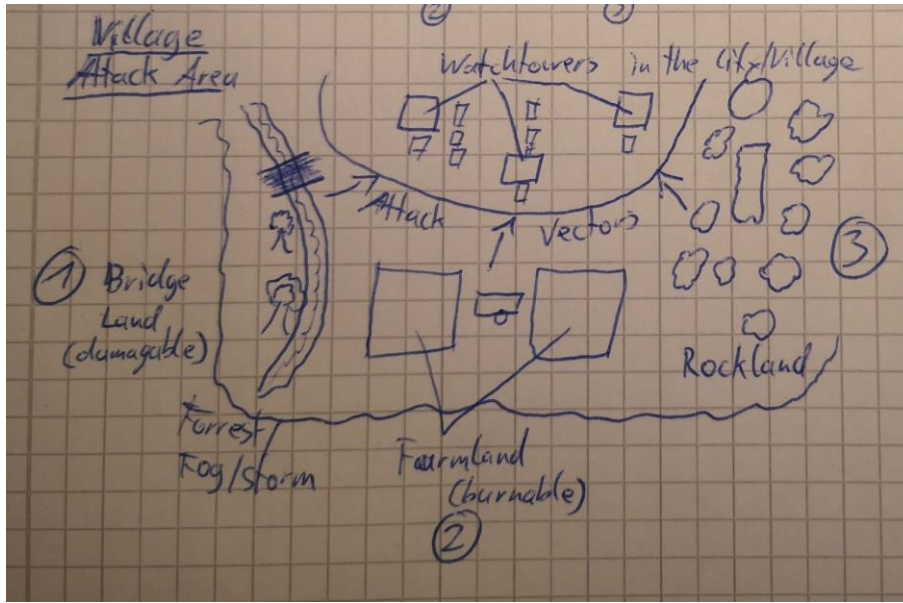 ② ③
Village
Attack Area
Watchtowers in the City/Village
Attack Vectors
① Bridge
Land
(damagable)
③
Rockland
Forrest
Fog/Storm
Faarmland
(burnable)
②